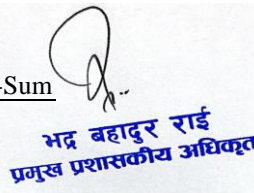 -Sum
भद्र बहादुर राई
प्रमुख प्रशासकीय अधिकृत